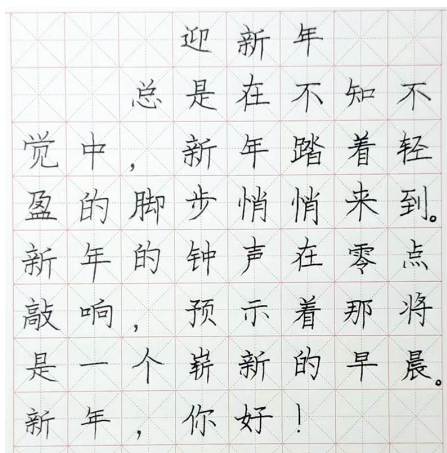 迎新年
总是在不知不
觉中，新年踏着轻
盈的脚步悄悄来到。
新年的钟声在零点
敲响，预示着那将
是一个崭新的早晨。
新年，你好！